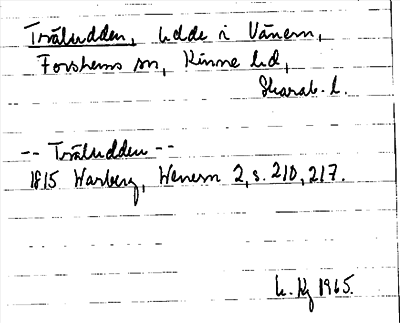 Träludden, udde i Vänern,
Forshems sn, Kinne hd,
Skarab. l.
-- Träludden --
1815 Warberg, Wenern 2, s. 210, 217.
1965.